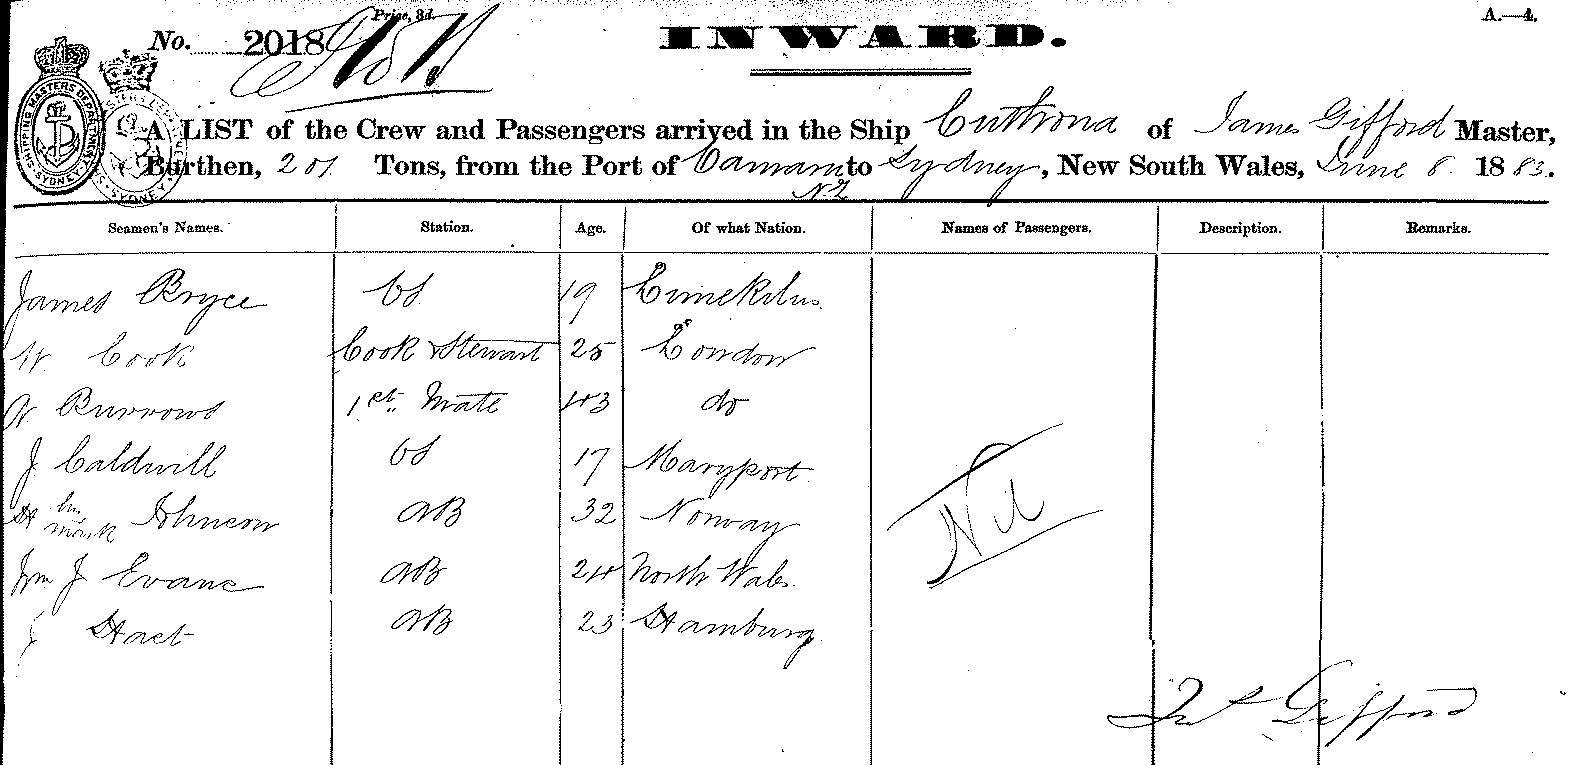 Price, 3d.
A.—4.
No. 2018
INWARD.
SHIPPING MASTERS DEPARTMENT
SYDNEY
A LIST of the Crew and Passengers arrived in the Ship Cuthona of James Gifford Master,
Burthen, 201 Tons, from the Port of Oamaru to Sydney, New South Wales, June 8 1883.
NZ
Seamen's Names. Station. Age. Of what Nation. Names of Passengers. Description. Remarks.
James Bryce OS 19 Limekilns
W. Cook Cook & Stewart 25 London
W. Burrows 1st Mate 43 do
J Caldwill OS 17 Maryport
H his mark Johnson AB 32 Norway
Wm J Evans AB 24 North Wales
J Hact AB 23 Hamburg
Nil
Jas Gifford